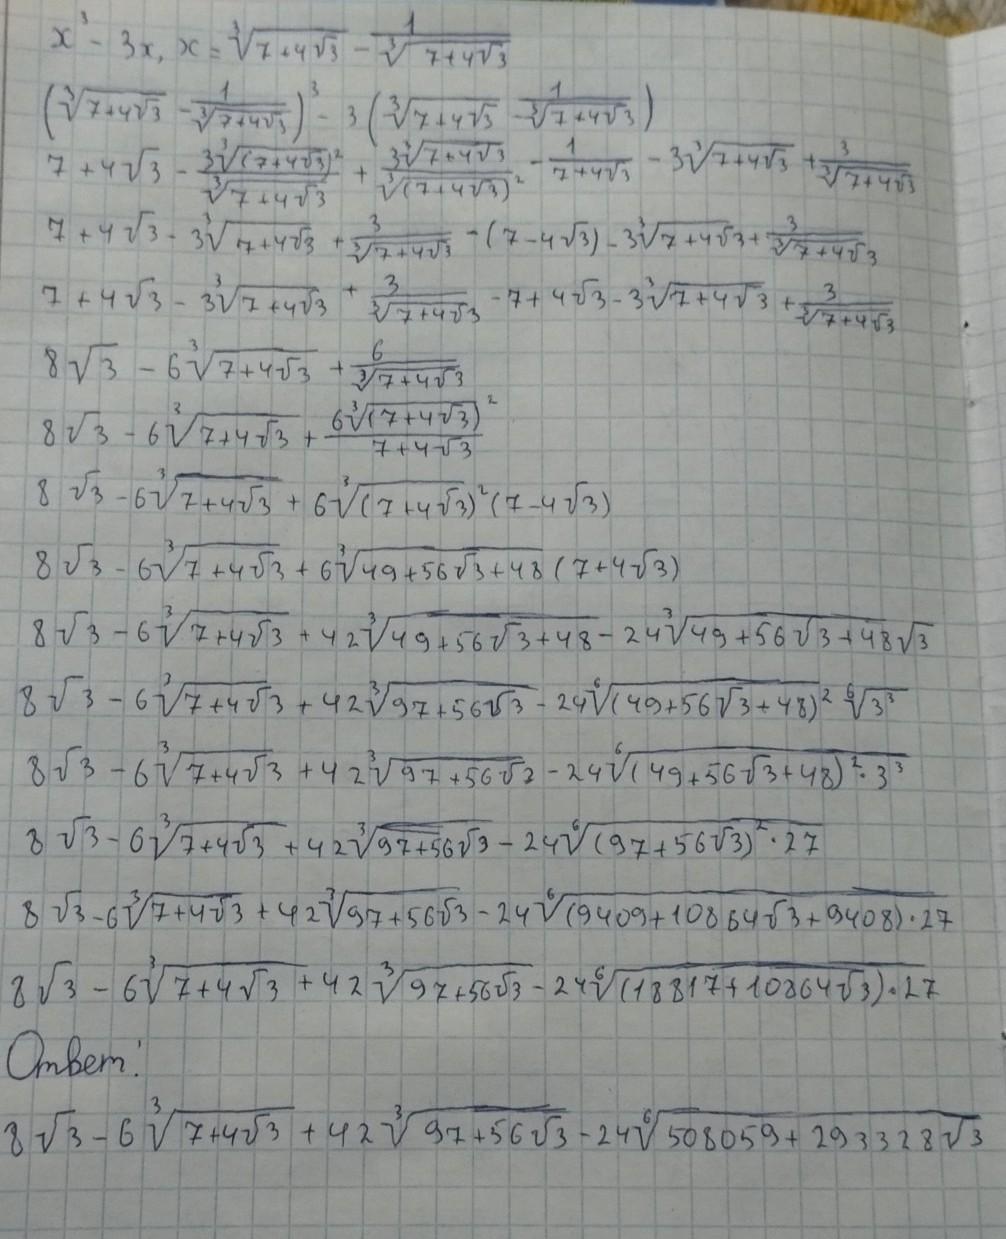 x³ - 3x, x = ∛(7+4√3) - 1/∛(7+4√3)
(∛(7+4√3) - 1/∛(7+4√3))³ - 3(∛(7+4√3) - 1/∛(7+4√3))
7+4√3 - 3∛(7+4√3)²/∛(7+4√3) + 3∛(7+4√3)/∛(7+4√3)² - 1/(7+4√3) - 3∛(7+4√3) + 3/∛(7+4√3)
7+4√3 - 3∛(7+4√3) + 3/∛(7+4√3) - (7-4√3) - 3∛(7+4√3) + 3/∛(7+4√3)
7+4√3 - 3∛(7+4√3) + 3/∛(7+4√3) - 7+4√3 - 3∛(7+4√3) + 3/∛(7+4√3)
8√3 - 6∛(7+4√3) + 6/∛(7+4√3)
8√3 - 6∛(7+4√3) + 6∛(7+4√3)²/(7+4√3)
8√3 - 6∛(7+4√3) + 6∛(7+4√3)² (7-4√3)
8√3 - 6∛(7+4√3) + 6∛(49+56√3+48) (7+4√3)
8√3 - 6∛(7+4√3) + 42∛(49+56√3+48) - 24∛(49+56√3+48)√3
8√3 - 6∛(7+4√3) + 42∛(97+56√3) - 24⁶√(49+56√3+48)² ⁶√3³
8√3 - 6∛(7+4√3) + 42∛(97+56√3) - 24⁶√((49+56√3+48)²·3³)
8√3 - 6∛(7+4√3) + 42∛(97+56√3) - 24⁶√((97+56√3)²·27)
8√3 - 6∛(7+4√3) + 42∛(97+56√3) - 24⁶√((9409+10864√3+9408)·27)
8√3 - 6∛(7+4√3) + 42∛(97+56√3) - 24⁶√((18817+10864√3)·27)
Ответ:
8√3 - 6∛(7+4√3) + 42∛(97+56√3) - 24⁶√(508059+293328√3)